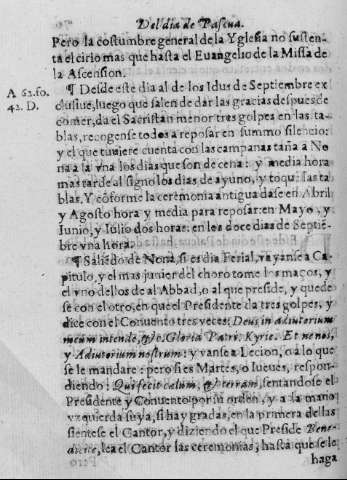 Del dia de Pascua.
Pero la costumbre general de la Yglesia no susten-
ta el cirio mas que hasta el Euangelio de la Missa de
la Ascension.
A 62. fo.
42. D.
¶ Desde este dia al de los Idus de Septiembre ex
clusiue, luego que salen de dar las gracias despues de
comer, da el Sacristan menor tres golpes en las ta-
blas, recogense todos a reposar en summo silencio:
y el que tuuiere cuenta con las campanas taña a No-
na a la vna los dias que son de cena: y media hora
mas tarde al signo los dias de ayuno, y toque las ta
blas. Y cõforme la ceremonia antigua dase en Abril
y Agosto hora y media para reposar: en Mayo, y
Iunio, y Iulio dos horas: en los doce dias de Septiē-
bre vna hora.
¶ Salido de Nona, si es dia Ferial, vayanse a Ca-
pitulo, y el mas junior del choro tome los maços, y
el vno dellos de al Abbad, o al que preside, y quede
se con el otro, en que el Presidente da tres golpes, y
dice con el Conuento tres veces: Deus in adiutorium
meum intende, &c. Gloria Patri. Kyrie. Et ne nos,
y Adiutorium nostrum: y vanse a Lecion, o a lo que
se le mandare: pero si es Martes, o Iueues, respon-
diendo: Qui fecit cælum, & terram, sentandose el
Presidente y Conuento por su orden, y a la mano
yzquierda suya, si hay gradas, en la primera dellas
sientese el Cantor, y diziendo el que Preside Bene-
dicite, lea el Cantor las ceremonias, hasta que se le
haga